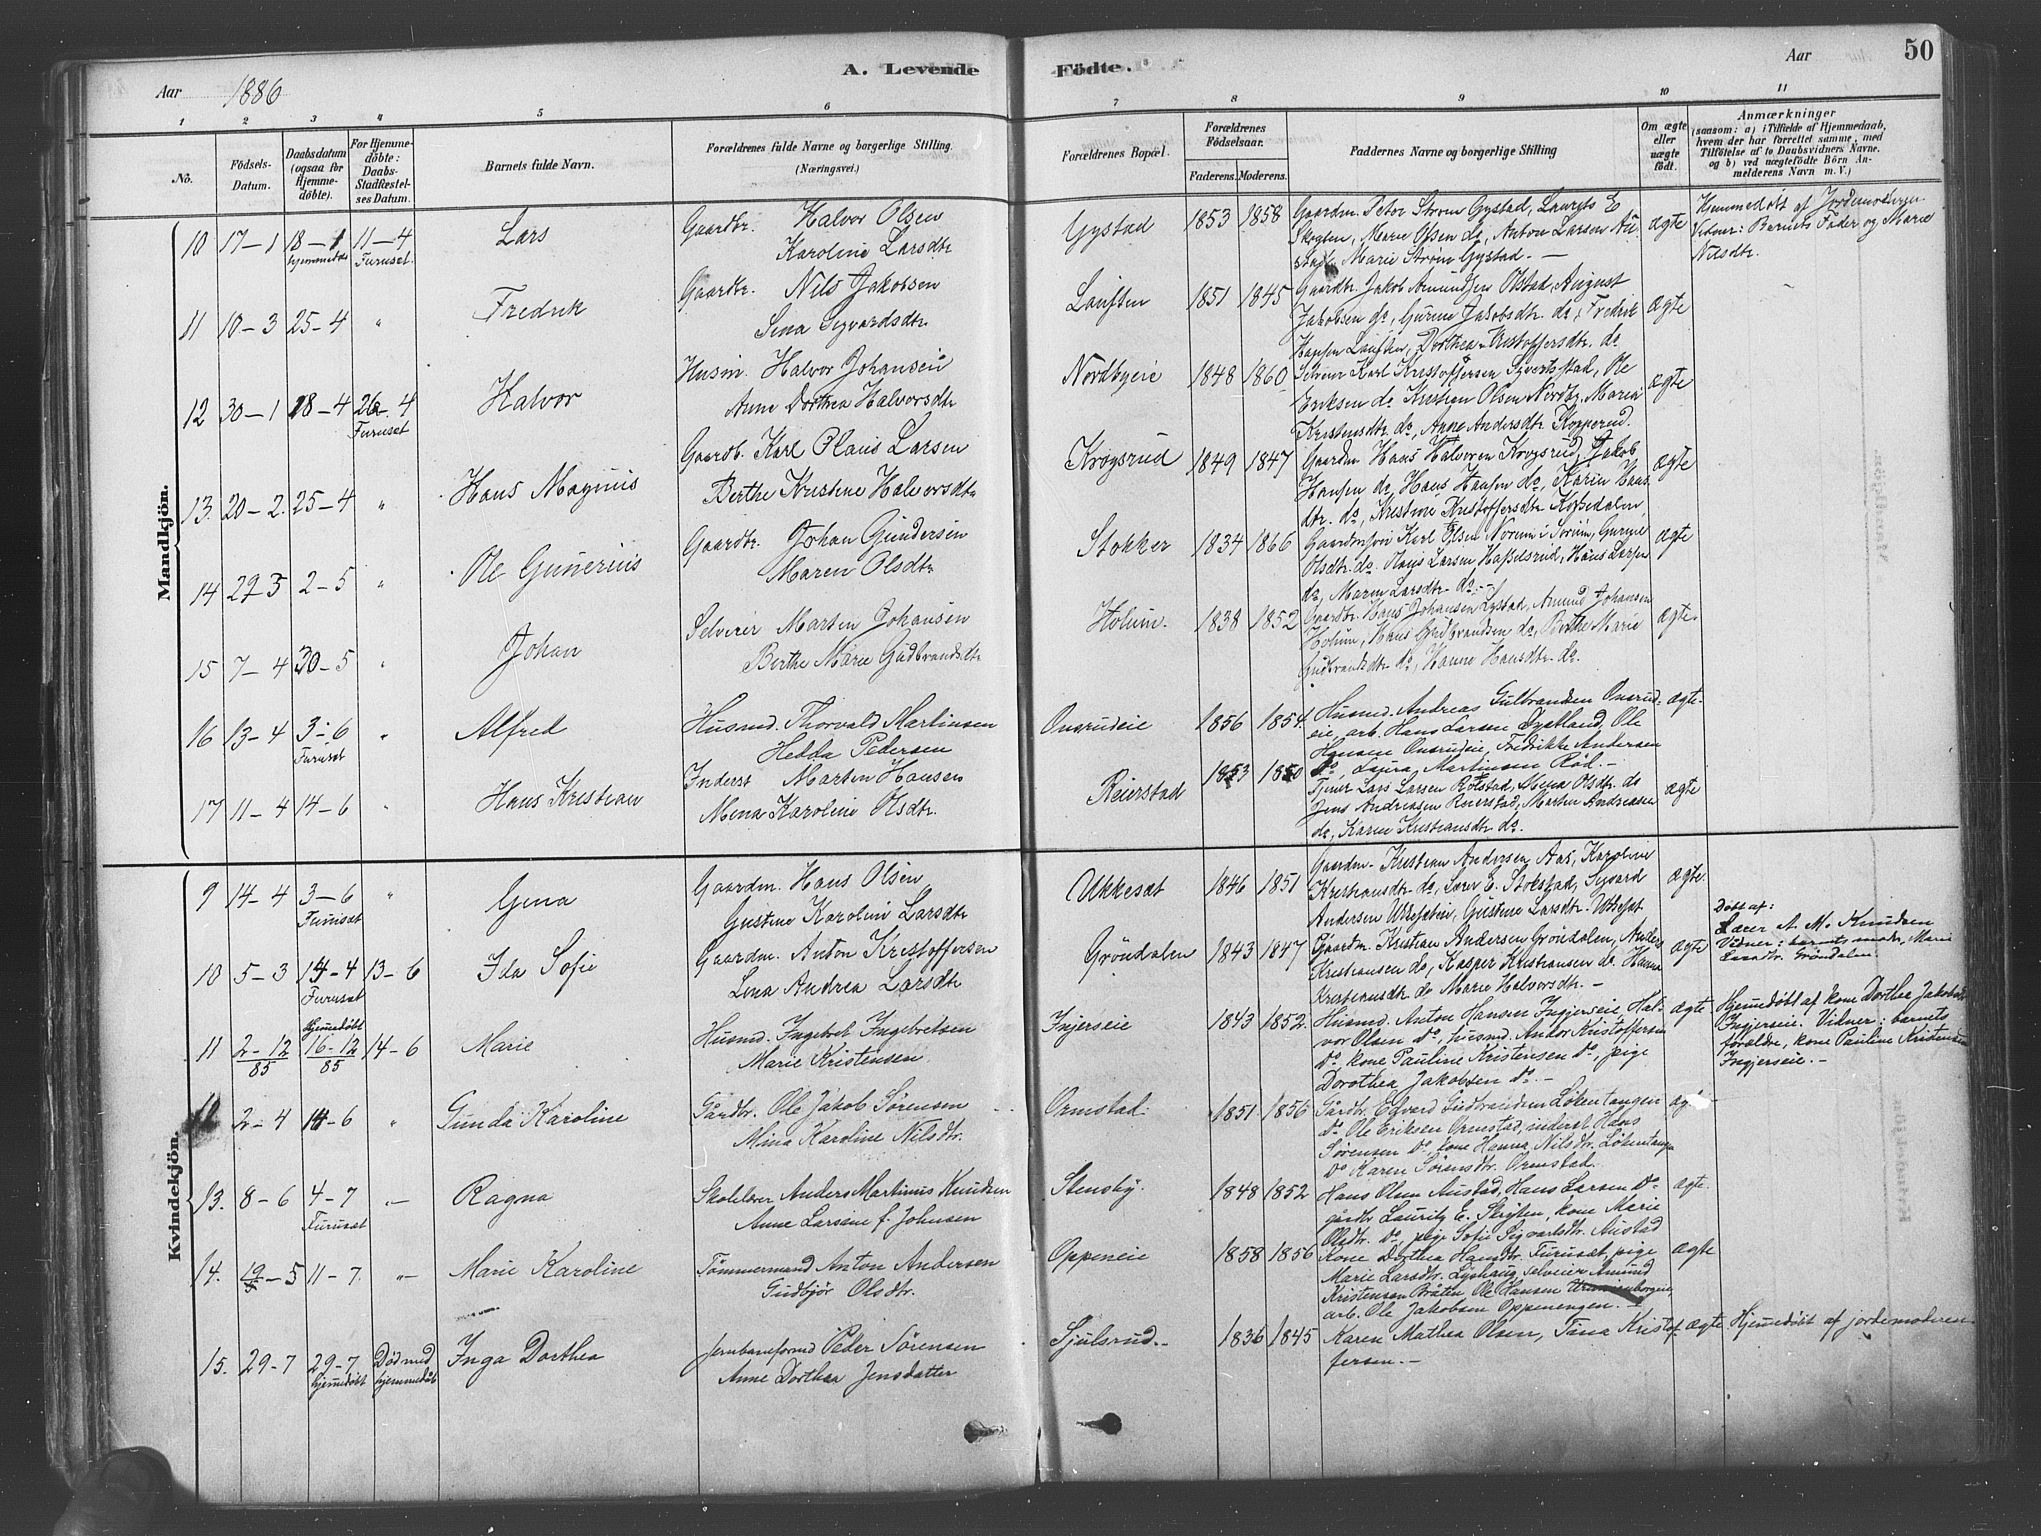 A. Levende Födte.
Aar 1886
Aar 50
1 2 3 4 5 6 7 8 9 10 11
No.
Födsels-Datum.
Daabsdatum (ogsaa for Hjemmedöbte).
For Hjemmedöbte: Daabs-Stadfæstelses Datum.
Barnets fulde Navn.
Forældrenes fulde Navne og borgerlige Stilling. (Næringsvei.)
Forældrenes Bopæl.
Forældrenes Födselsaar.
Faderens. Moderens.
Faddernes Navne og borgerlige Stilling
Om ægte eller uægte födt.
Anmærkninger
(saasom: a) i Tilfælde af Hjemmedaab, hvem der har forrettet samme, med Tilföielse af to Daabsvidners Navne, og b) ved uægtefödte Börn Anmelderens Navn m. V.)
Mandkjön.
10 17–1 18–1 hjemmedöbt 11–4 Furuset.
Lars
Gaardbr. Halvor Olsen
Karoline Larsdtr
Gystad 1853 1858
Gaardm. Peter Strøm Gystad, Laurits E
Skogten, Marie Olsen do, Anton Larsen Au
stad, Marie Strøm Gystad. –
ægte
Hjemmedöbt af Jordemoderen
Vidner: Barnets Fader og Marie
Nilsdtr.
11 10–3 25–4 "
Fredrik
Gaardbr. Nils Jakobsen
Sina Sigvardsdtr
1851 1845
Gaardbr. Jakob Amundsen Olstad, August
Jakobsen do, Gurine Jakobsdtr. do, Fredrik
Hansen, Dorthea Kristoffersdtr. do
ægte
12 30–1 18–4 26–4 Furuset
Halvor
Husm. Halvor Johansen
Anne Dorthea Halvorsdtr
Nordbyeie 1848 1860
Selveier Karl Kristoffersen Syvertstad, Ole
Eriksen do Kristian Olsen Nordby, Maria
Kristensdtr do, Anne Andersdtr Kopperud.
ægte
13. 20–2. 25–4 "
Hans Magnus
Gaardb. Karl Olaus Larsen
Berthe Kristine Halvorsdtr
Krogsrud 1849 1847
Gaardm Hans Halvorsen Krogsrud, Jakob
Hansen do, Hans Hansen do, Karin Hans
dtr. do, Kristine Kristoffersdtr
ægte
14 29–3 2–5 "
Ole Gunerius
Gaardbr. Johan Gundersen
Maren Olsdtr
Stokker 1834 1866
Karl Olsen Norum i Sørum, Gurine
Olsdtr. do. Olaus Larsen Hasselsrud, Hans Larsen
do, Maren Larsdtr do. –
ægte
15 7–4 30–5 "
Johan
Selveier Marten Johansen
Berthe Marie Gudbrandsdtr
Holum. 1838 1852
Gaardbr. Hans Johansen Lystad, Amund Johansen
Holum, Hans Gudbrandsen do, Berthe Marie
Gudbrandsdtr do, Hanne Hansdtr do.
ægte
16 13–4 3–6 Furuset "
Alfred
Husmd. Thorvald Martinsen
Hedda Pedersen
Onsrudeie 1856 1854.
Husmd. Andreas Gulbrandsen Onsrud-
eie, arb. Hans Larsen Jystland, Ole
Hansen Onsrudeie, Fredrikke Andersen
Do, Laura Martinsen Rød. –
ægte
17 11–4 14–6 "
Hans Kristian
Inderst Marten Hansen
Mina Karoline Olsdtr.
Reierstad 1853 1850
Tjener Lars Larsen Rolstad, Mina Olsdtr. do
Jens Andreasen Reierstad, Martin Andreasen
do, Karen Kristiansdtr do.
ægte
Kvindekjön.
9 14–4 3–6 Furuset "
Gina
Gaardm. Hans Olsen
Gustine Karoline Larsdtr
Ukkesæt 1846 1851
Gaardm. Kristian Andersen Aas, Karoline
Kristiansdtr do, Søren E. Stokstad, Sigvard
Andersen, Gustine Larsdtr.
ægte
10 5–3 14–4 Furuset 13–6
Ida Sofie
Gaardm. Anton Kristoffersen
Lina Andrea Larsdtr
Gröndalen 1843 1847
Gaardm. Kristian Andersen Gröndalen, Anders
Kristiansen do, Kasper Kristiansen do. Hanna
Kristiansdtr do Marie Halvorsdtr. –
ægte
Døbt af:
Lærer A. M. Knudsen
Vidner: barnets moder, Marie
Larsdtr. Grøndalen.
11 2–12/85 Hjemmedöbt 16–12/85 14–6
Marie
Husmd. Ingebret Ingebretsen
Marie Kristensen
Injerseie 1843 1852.
Husmd. Anton Hansen Ingjerseie, Hal-
vor Olsen Do, husmd. Andor Kristoffersen
Do. kone Pauline Kristensen Do, pige
Dorothea Jakobsen Do. –
ægte
Hjemmedöbt af kone Dorthea Jakobsd
Ingjerseie. Vidner: barnets
forældre, kone Pauline Kristensen
Ingjerseie. –
12 2–4 14–6 "
Gunda Karoline
Gårdbr. Ole Jakob Sørensen
Mina Karoline Nilsdtr.
Ormstad. 1851 1856
Gårdbr. Edvard Gudbrandsen Løkentangen
Do. Ole Eriksen Ormstad, inderst Hans
Sørensen Do, kone Hanna Nilsdtr. Løkentangen
Do Karen Sørensdtr. Ormstad.
13. 8–6 4–7 Furuset "–
Ragna
Skolelærer Anders Martinus Knudsen
Anne Larsine f. Johnsen
Stensby. 1848 1852
Hans Olsen Austad, Hans Larsen Do.
gårdbr Lauritz E. Skogten, kone Marie
Olsdtr. Do, pige Sofie Sigvartsdtr. Austad
ægte.
14. 19–5 11–7. "–
Marie Karoline
Tömmermand Anton Andersen
Gudbjör Olsdtr.
Oppeneie 1858 1856
Kone Dorthea Hansdtr. Furuset, pige
Marie Larsdtr. Lyshaug, selveier Amund
Kristensen Bråten Ole Hansen
arb. Ole Jakobsen Oppenengen. –
ægte
15. 29–7 29–7 hjemmedöbt Död med hjemmedåb
Inga Dorthea
Jernbaneformd Peder Sörensen
Anne Dorthea Jensdatter
Sjulsrud. 1836 1845
Karen Mathea Olsen, Tina Kristof-
fersen. –
ægte
Hjemmedöbt af jordemoderen